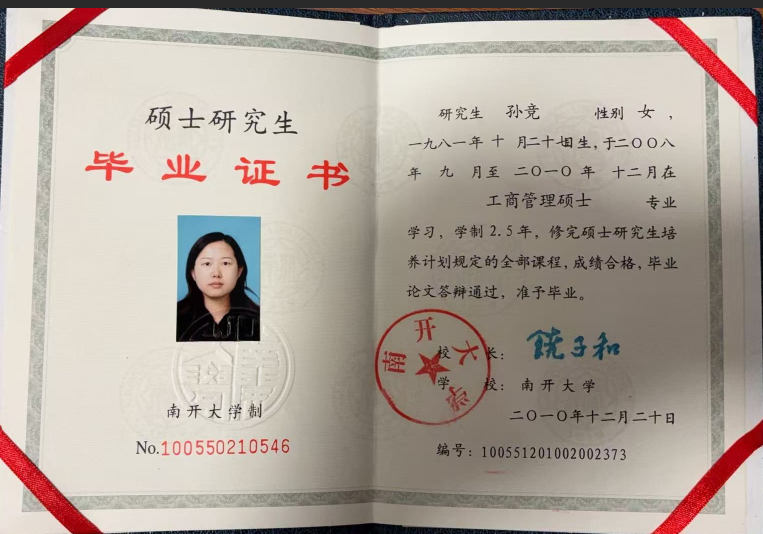 硕士研究生
毕业证书
南开大学制
No.100550210546
研究生 孙竞 性别 女，
一九八一年 十 月二十 日生，于二〇〇八
年 九 月至 二〇一〇 年 十二月在
工商管理硕士 专业
学习，学制 2.5 年，修完硕士研究生培
养计划规定的全部课程，成绩合格，毕业
论文答辩通过，准予毕业。
校 长： 饶子和
学 校： 南开大学
二〇一〇年十二月二十日
编号：100551201002002373
南开大学